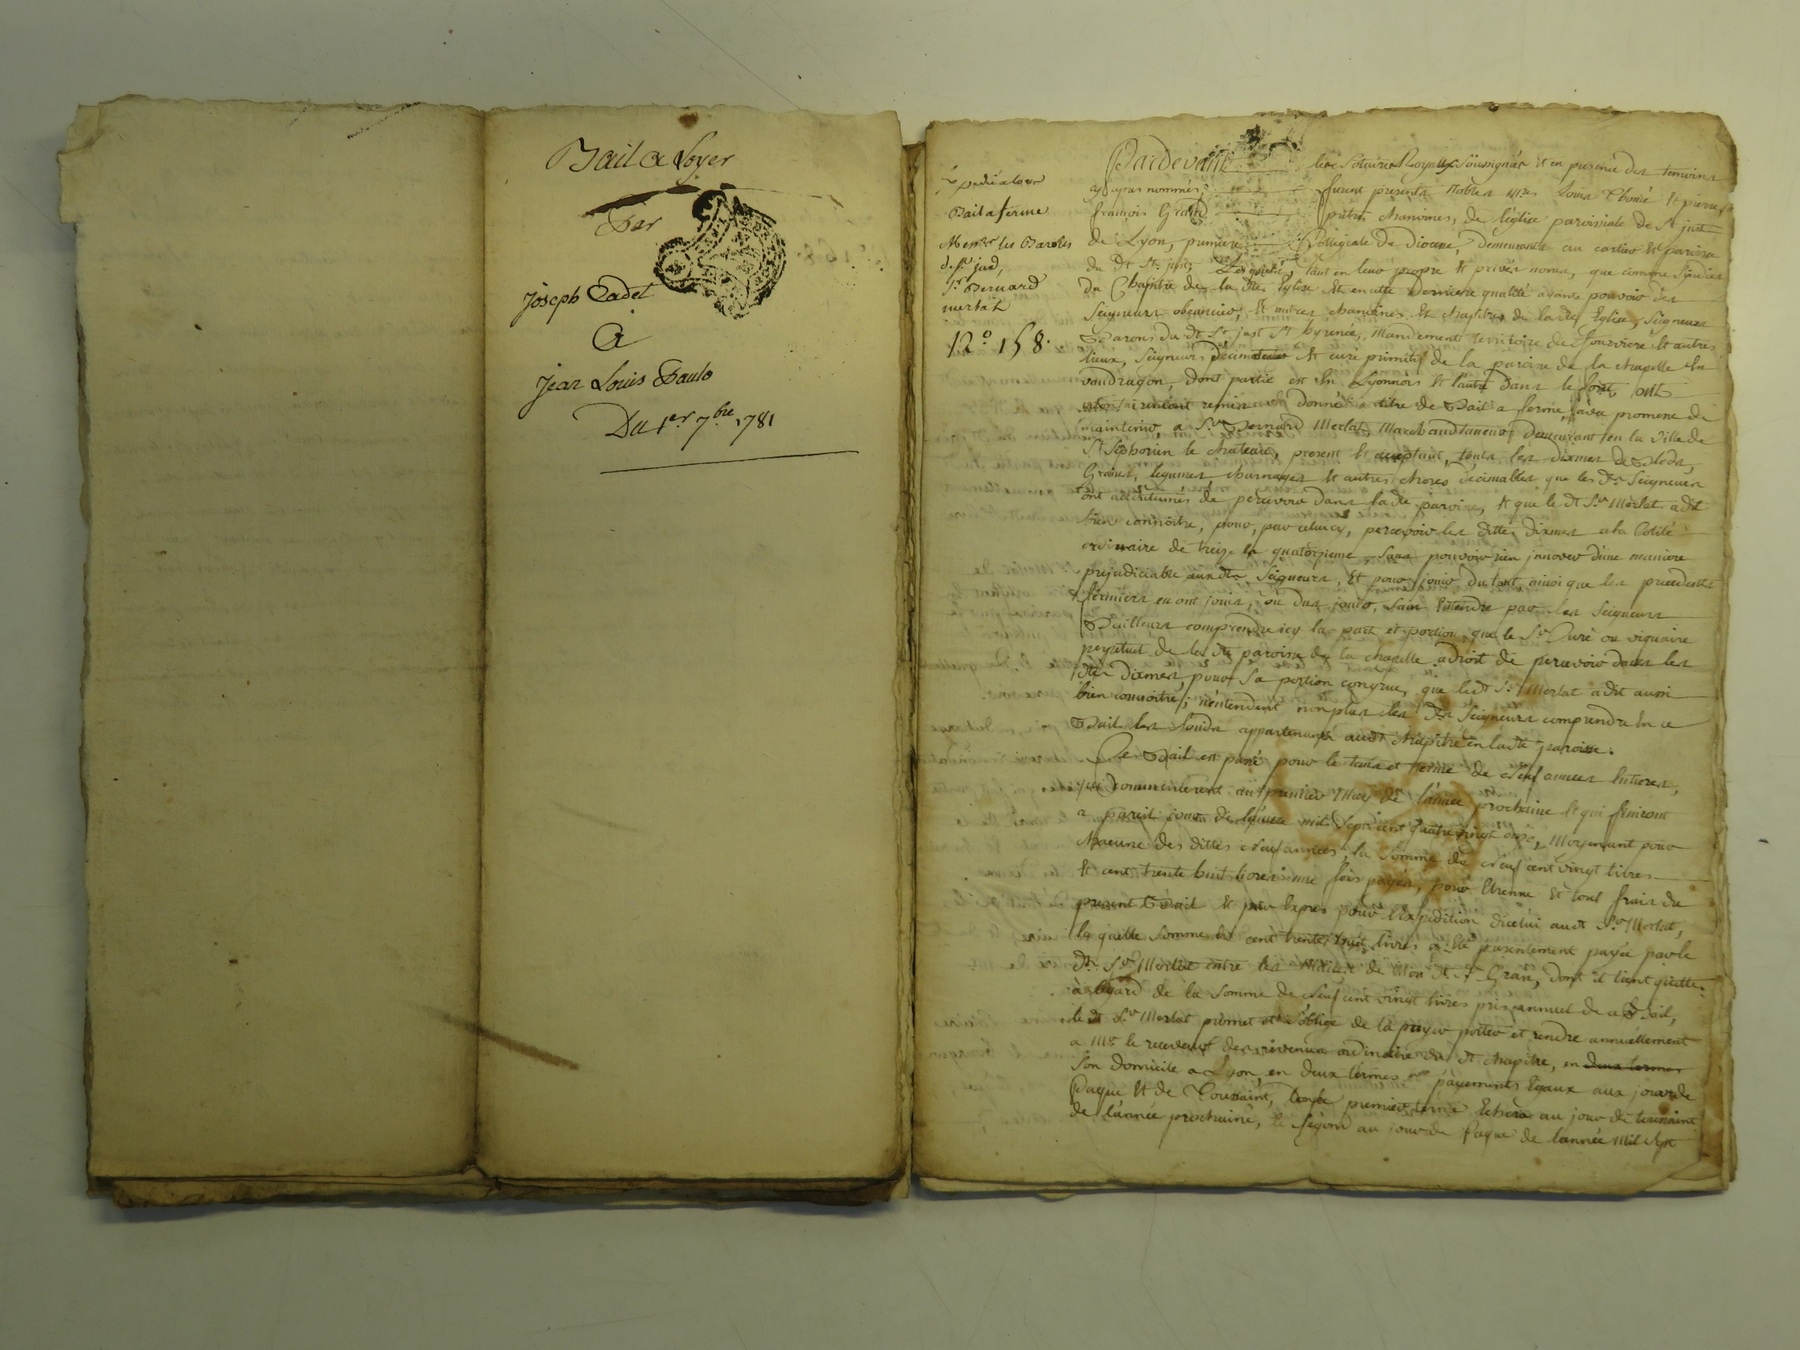 Bail a Loyer
Par
Joseph Cadet
A
Jean Louis Paulo
Du 1er 7bre 1781
Bail a ferme
Messrs les Barons
de st just,
Sr Bernard
merlat
12o 158.
Pardevant les Notaires Royaux soussignés et en presence des temoins
cy apres nommés furent presents Nobles Mres Louis et pierre
françois Grand pretres chanoines, de l'église paroissiale de st just
de Lyon, premiere Collégiale du Diocese, demeurants au cartier et paroisse
du dt st just tant en leur propre et privés noms, que comme sindics
du Chapitre de la dte Eglise et en cette derniere qualité ayants pouvoir des
Seigneurs obeancier, et autres chanoines et chapitre de la dte Eglise, Seigneurs
Barons du dt st just st hyrenée, Mandement territoire de fourviere et autres
lieux, Seigneurs decimateurs et curé primitif de la paroisse de la chapelle en
vaudragon, dont partie est en Lyonnois et l'autre dans le forêt, ont
remis et donné a titre de Bail a ferme, avec promesse de
maintenir, a Sr Bernard Merlat Marchand taneur demeurant en la Ville de
St Saphorin le chateau, present et acceptant, toutes les dixmes de Bleds,
Grains, legumes, charnages et autres choses decimables que les dts Seigneurs
ont accoutumés de percevoir dans la dte paroisse, et que le dt Sr Merlat a dit
bien connoitre, pour, par celuicy, percevoir les dittes dixmes a la Cotité
ordinaire de treize la quatorzieme, sans pouvoir rien innover d'une maniere
prejudiciable aux dts Seigneurs, Et pour jouir du tout ainsi que les precedents
fermiers en ont jouis, ou dus jouir, sans entendre par les Seigneurs
Bailleurs comprendre icy la part et portion que le Sr Curé ou viquaire
perpetuel de la dte paroisse de la chapelle a droit de percevoir dans les
dtes dixmes pour sa portion congrue, que le dt Sr Merlat a dit aussi
bien connoitre; n'entendent non plus les dts Seigneurs comprendre en ce
Bail les fonds appartenants audt chapitre en la dte paroisse.
Ce Bail est passé pour le tems et terme de Neuf années entieres,
qui commenceront au premier May de l'année prochaine et qui finiront
a pareil jour de l'année mil sept cent quatre vingt onze, Moyennant pour
chacune des dittes Neuf années, la somme de Neuf cent vingt livres
et cent trente huit livres une fois payés, pour Etrenne et tout frais du
present Bail et par Expres pour l'expedition d'icelui audt Sr Merlat,
laquelle somme de cent trente huit livres a été presentement payée par le
dt Sr Merlat entre les mains de Mon dt Sr Grand, dont il tient quitte.
a l'égard de la somme de Neuf cent vingt livres pris annuel de ce Bail,
le dt Sr Merlat promet et s'oblige de la payer porter et rendre annuellement
a Mr le receveur des revenus ordinaire du dt chapitre, en deux termes
son domicile a Lyon, en deux termes payements Egaux aux jours de
Paque et de Toussaint, dont le premier terme Echera au jour de toussaint
de l'année prochaine, le segond au jour de Paque de l'année mil sept